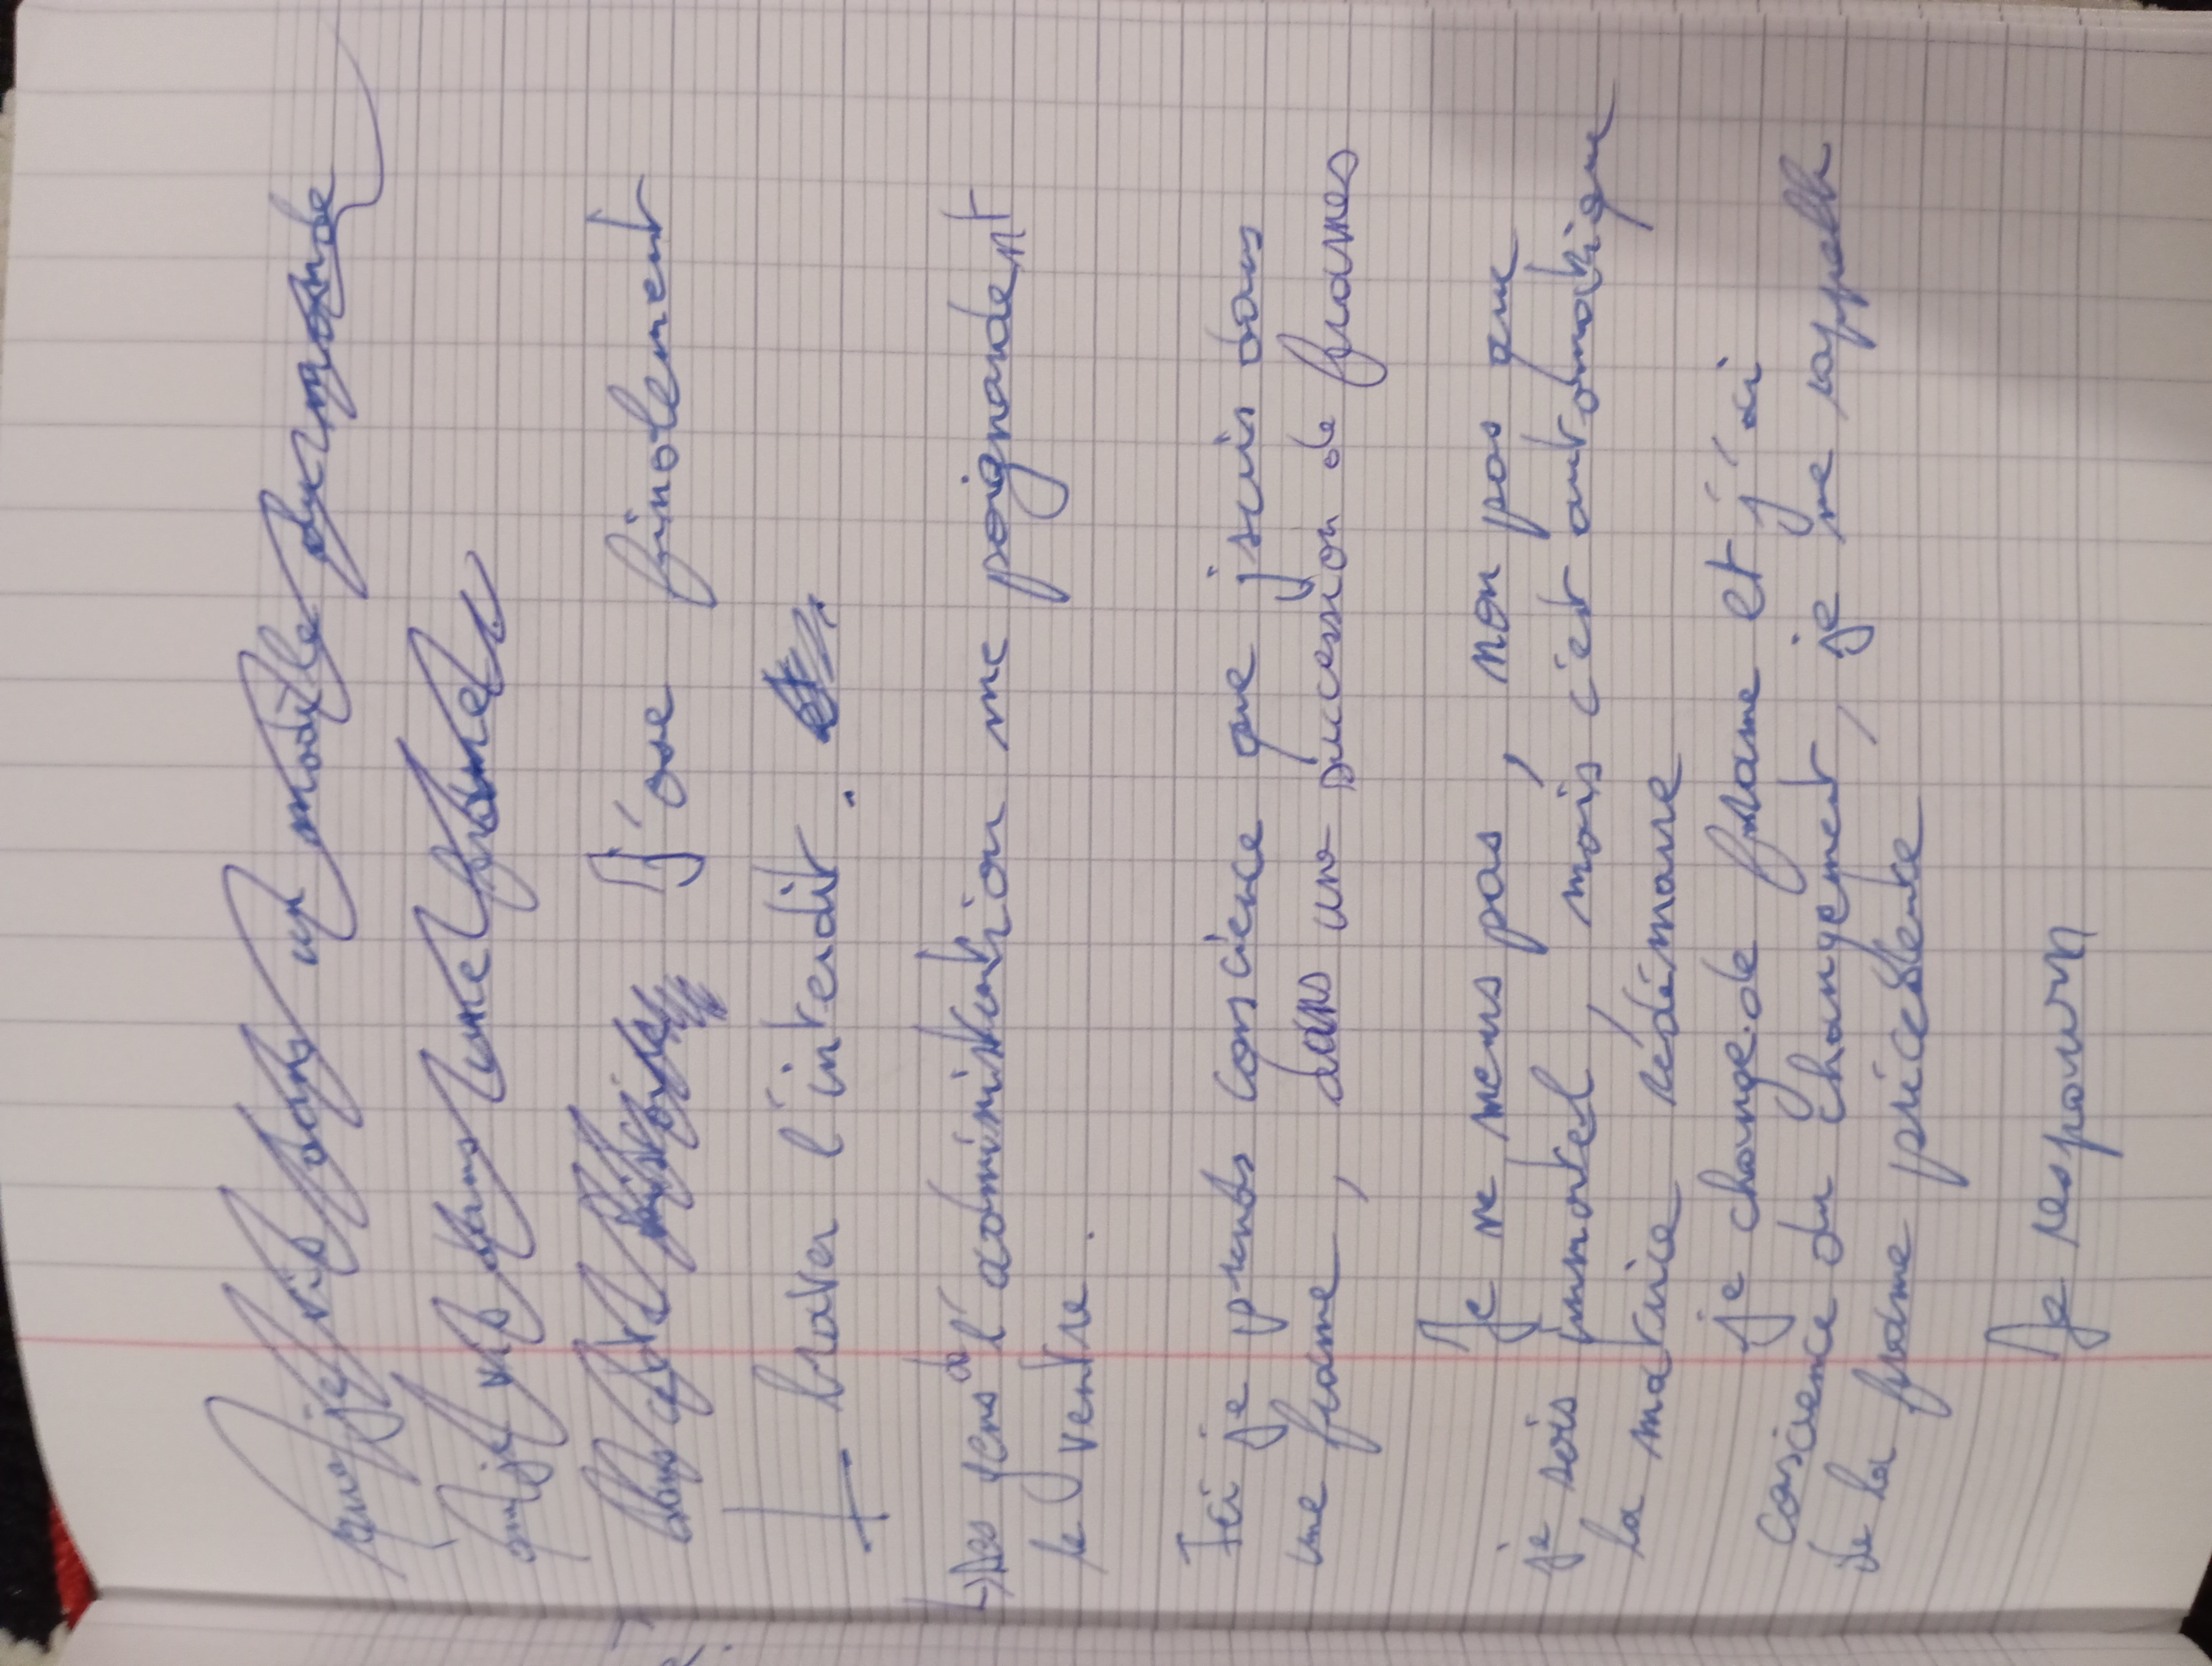 que je vis dans un modèle du monde
que je vis dans une frame
dans cette histoire J'ose finalement
braver l'interdit.
→ Des gens de l'administration me poignardent
le ventre.
Ici je prends conscience que jsuis dans
une frame, dans une succession de frames
Je ne meurs pas, non pas que
je sois immortel, mais c'est automatique
la matrice redémarre
je change de frame et j'ai
conscience du changement, je me rappelle
de la frame précédente
Je respawn